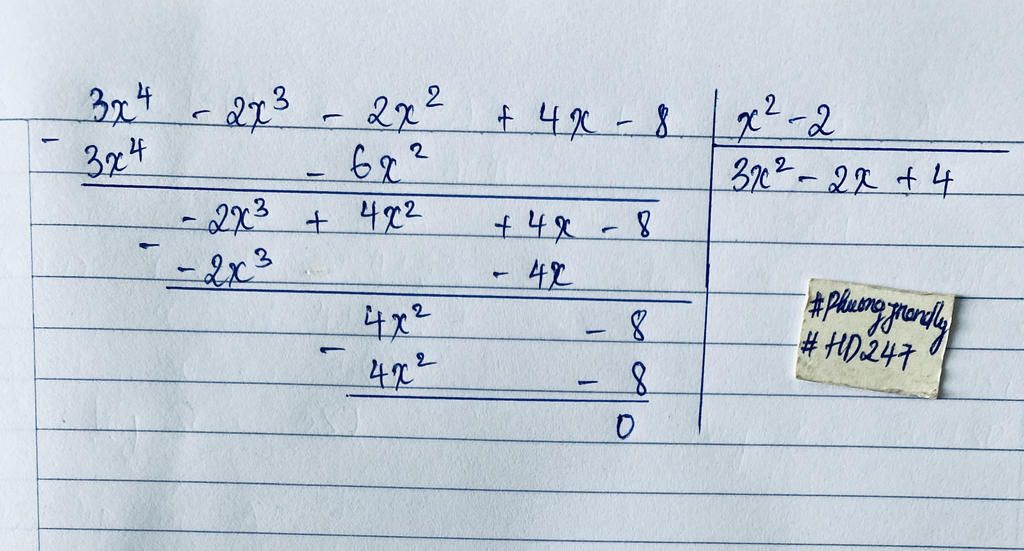 3x⁴ - 2x³ - 2x² + 4x - 8 | x² - 2
- 3x⁴ - 6x² | 3x² - 2x + 4
- 2x³ + 4x² + 4x - 8
- - 2x³ - 4x
4x² - 8
- 4x² - 8
0
# HD247